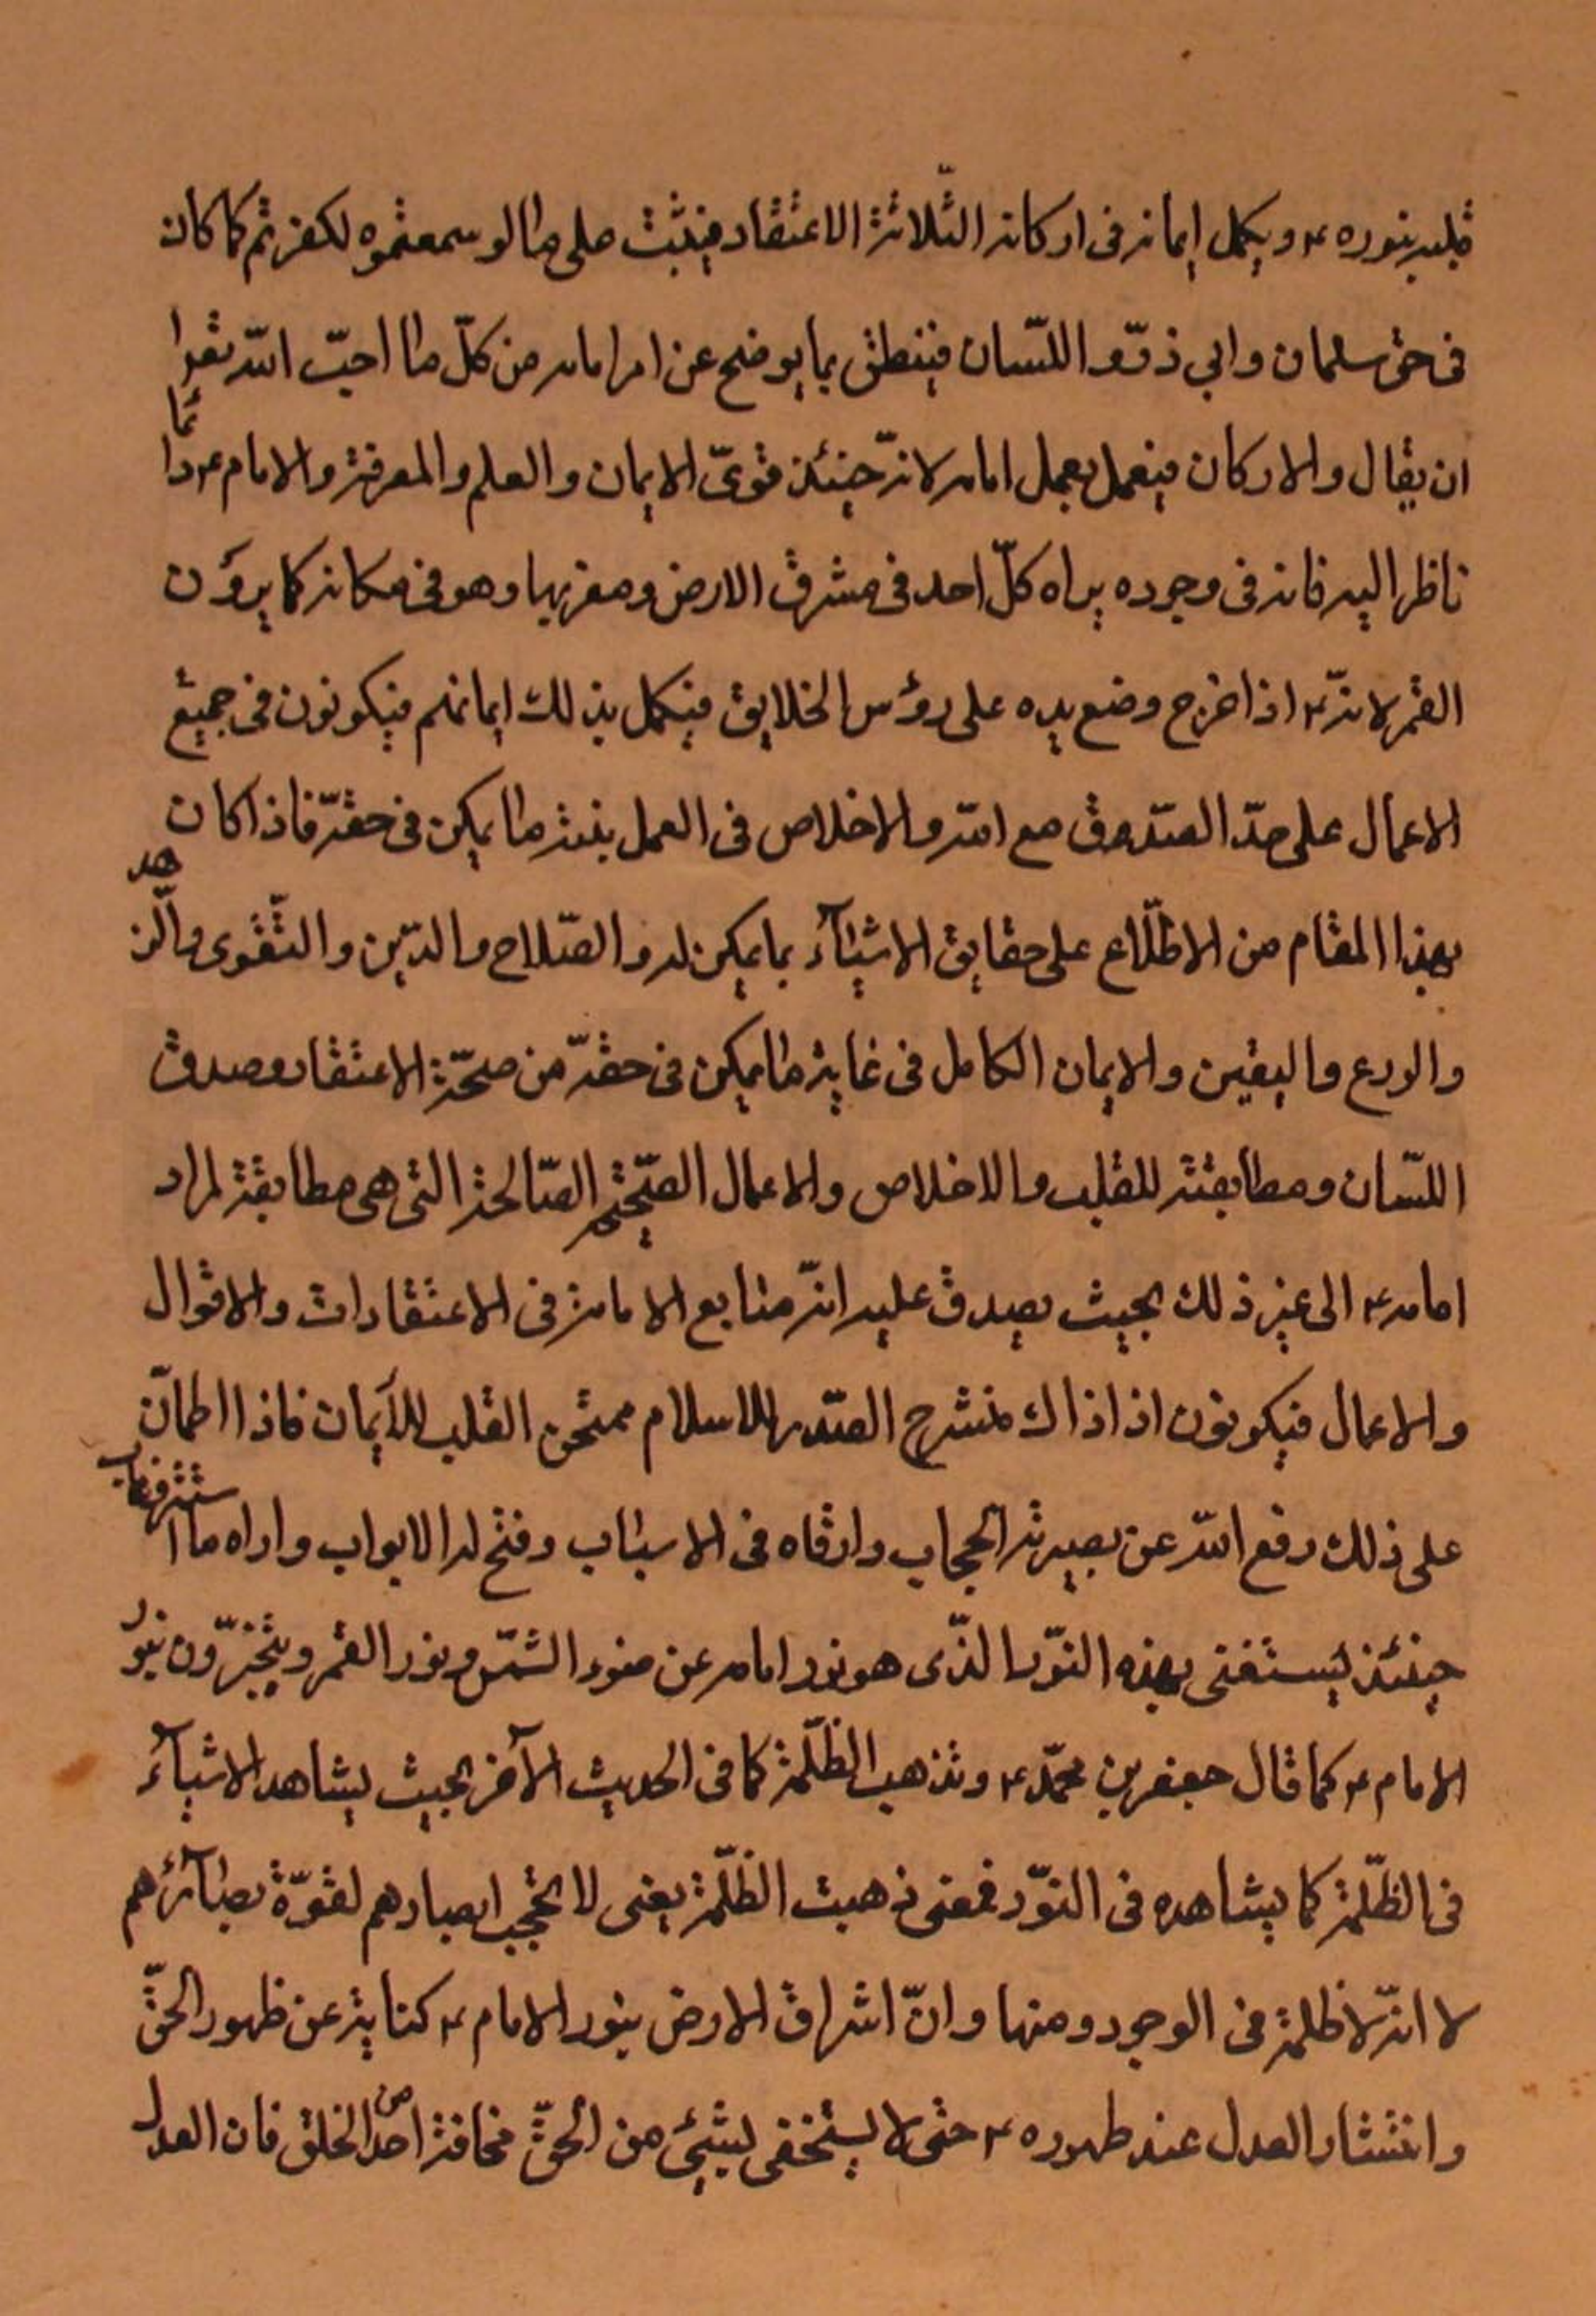 قلبه بنوره ء ويكمل ايمانه فى اركانه الثّلاثة الاعتقاد فيثبت على ما لو سمعتموه لكفرتم كما كان
فى حق سلمان وابي ذرّ و اللسّان فينطق بما يوضح عن امر امامه من كلّ ما احبّ اللّه تعالى
ان يقال والاركان فيعمل بعمل امامه لانّه حينئذ قوىّ الايمان والعلم والمعرفة والامام ء دائما
ناظر اليه فانه فى وجوده يراه كلّ احد فى مشرق الارض ومغربها وهو فى مكانه كما يرون
القمر لانّه ء اذا خرج وضع يده على رؤس الخلايق فيكمل بذلك ايمانهم فيكونون فى جميع
الاعمال على حدّ الصّدق مع اللّه والاخلاص فى العمل بنسبة ما يمكن فى حقّه فاذا كان
بهذا المقام من الاطّلاع على حقايق الاشيآء بما يمكن له والصّلاح والدّين والتّقوى والزّهد
والورع واليقين والايمان الكامل فى غاية ما يمكن فى حقّه من صحّة الاعتقاد وصدق
اللسّان ومطابقته للقلب والاخلاص والاعمال الصّحيحة الصّالحة التى هى مطابقة لمراد
امامه ء الى غير ذلك بحيث يصدق عليه انّه متابع لامامه فى الاعتقادات والاقوال
والاعمال فيكونون اذ اذاك منشرح الصّدر للاسلام ممتحن القلب للايمان فاذا اطمانّ
على ذلك رفع اللّه عن بصيرته الحجاب وارقاه فى الاسباب وفتح له الابواب واراه ما استتر فى غاب
حينئذ يستغنى بهذه النّور الذّى هو نور امامه عن ضوء الشّمس ونور القمر ويتجزّون بنور
الامام ء كما قال جعفر بن محمّد ء وتذهب الظّلمة كما فى الحديث الآخر بحيث يشاهد الاشيآء
فى الظّلمة كما يشاهده فى النّور فمعنى ذهبت الظّلمة يعنى لا تحجب ابصارهم لقوّة بصآئرهم
لا انّه لا ظلمة فى الوجود ومنها وانّ اشراق الارض بنور الامام ء كناية عن ظهور الحقّ
وانتشار العدل عند ظهوره ء حتى لا يستخفى بشيئ من الحقّ مخافة احد من الخلق فان العدل